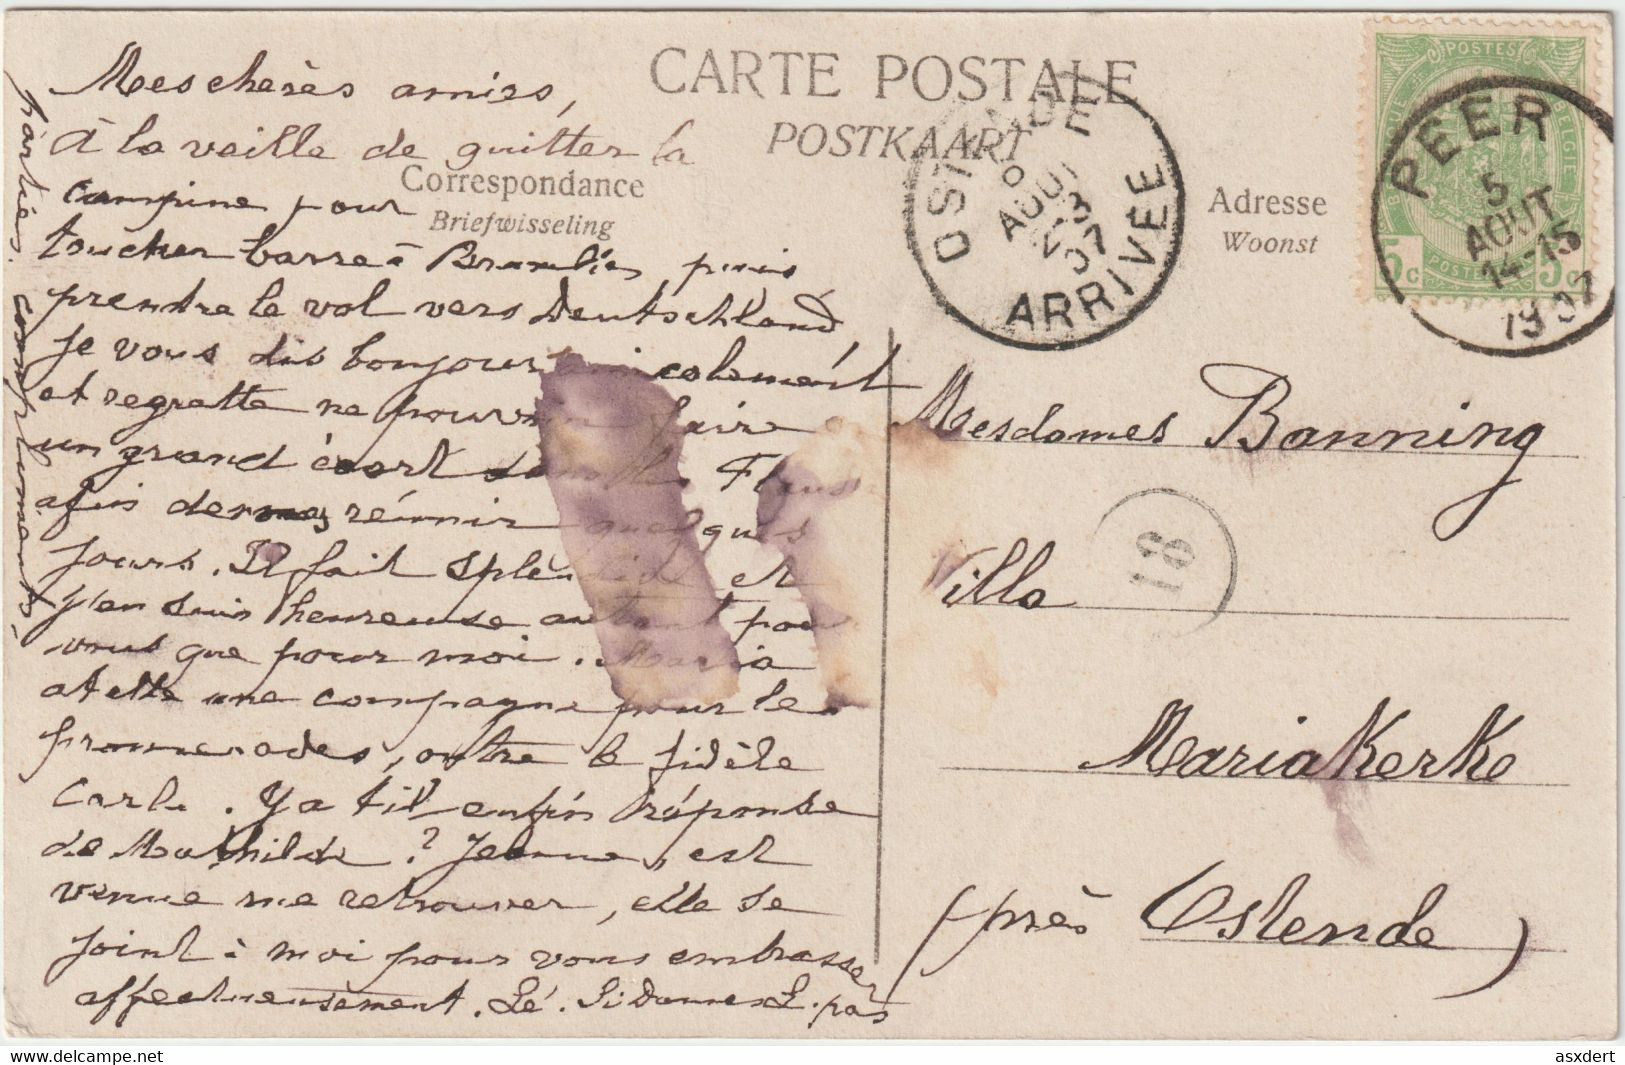 CARTE POSTALE
POSTKAART
Correspondance
Briefwisseling
Adresse
Woonst
POSTES
BELGIQUE
BELGIE
POSTERIJEN
5c 5c
PEER
5
AOUT
14-15
1907
OSTENDE
AOUT
23
07
ARRIVÉE
18
Mes chères amies,
À la veille de quitter la
campine pour
toucher barre à puis
prendre le vol vers Deutschland
je vous dis bonjour amicalement
et regrette ne pouvoir faire
un grand écart dans les
afin de nous réunir quelques
jours. Il fait splendide et
j'en suis heureuse autant pour
vous que pour moi. Maria
est une compagne pour les
promenades, outre le fidèle
Carlo. Y a t'il enfin réponse
de Mathilde ? Jeanne, est
venue me retrouver, elle se
joint à moi pour vous embrasser
affectueusement. Sé. Si Dumes L. pas
parties. compliments.
Mesdames Banning
Villa
Mariakerke
(près Ostende)
asxdert